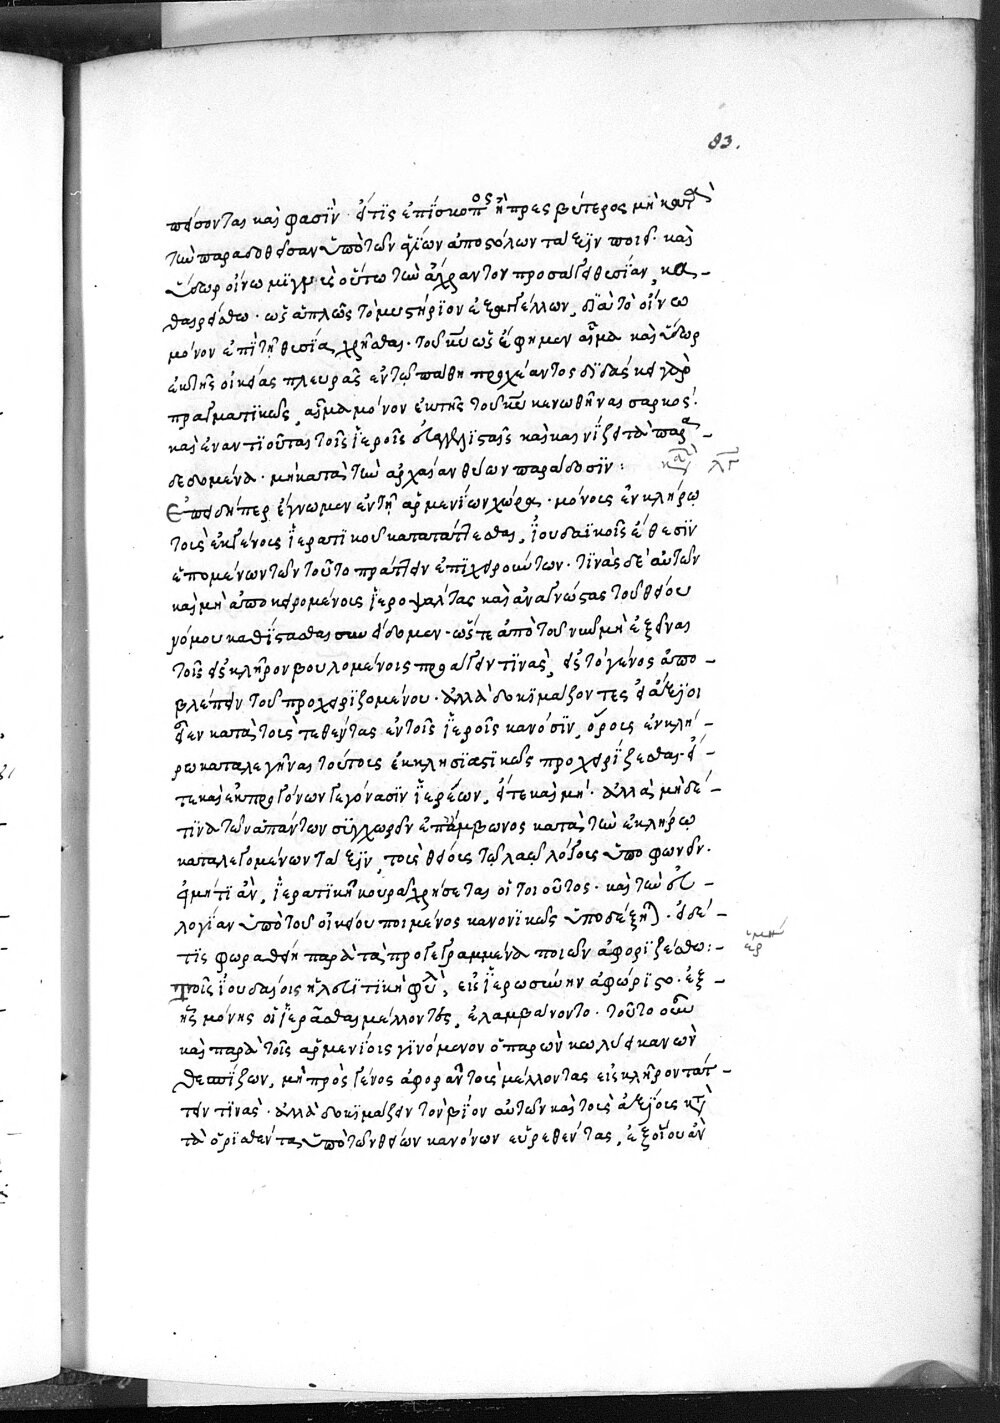 83.
πέσονται καὶ φασίν· εἴ τις ἐπίσκοπος ἢ πρεσβύτερος μὴ κατὰ
τὴν παραδοθεῖσαν ὑπὸ τῶν ἁγίων ἀποστόλων τάξιν ποιεῖ· καὶ
ὕδωρ οἴνω μιγνὺς οὕτω τὴν ἄχραντον προσαγει θυσίαν, κα-
θαιρείσθω· ὡς ἀτελῶς τὸ μυστήριον ἐξαγγέλλων, διὰ τὸ οἴνω
μόνον ἐπὶ τῇ θυσία χρῆσθαι· τοῦ κυ ὡς ἔφημεν αἷμα καὶ ὕδωρ
ἐκ τῆς οἰκείας πλευρᾶς ἐν τῷ πάθει προχέαντος διδάσκει γὰρ
πραγματικῶς, αἷμα μόνον ἐκ τῆς τοῦ κυ κενωθῆναι σαρκός·
καὶ ἐναντιοῦται τοῖς ἱεροῖς εὐαγγελισταῖς καὶ καινίζει τὰ παρα-
δεδομένα· μὴ κατὰ τὴν ἀρχαίαν θείων παράδοσιν: καν λγ
Ἐπειδήπερ ἔγνωμεν ἐν τῇ ἀρμενίων χώρα· μόνους ἐν κλήρω
τοὺς ἐκ γένους ἱερατικοῦ κατατάττεσθαι, ἰουδαϊκοῖς ἔθεσιν
ἑπομένων τῶν τοῦτο πράττειν ἐπιχειρούντων· τινὰς δὲ αὐτῶν
καὶ μὴ ἀποκειρομένους ἱεροψάλτας καὶ ἀναγνώστας τοῦ θείου
νόμου καθίστασθαι συνείδομεν· ὥστε ἀπὸ τοῦ νῦν μὴ ἐξεῖναι
τοῖς εἰς κλῆρον βουλομένοις προάγειν τινὰς, εἰς τὸ γένος ἀπο-
βλέπειν τοῦ προχειριζομένου· ἀλλὰ δοκιμάζοντες εἰ ἄξιοι
εἶεν κατὰ τοὺς τεθέντας ἐν τοῖς ἱεροῖς κανόσιν, ὅρους ἐν κλή-
ρω καταλεγῆναι τούτους ἐκκλησιαστικῶς προχειρίζεσθαι· εἴ-
τε καὶ ἐκ προγόνων γεγόνασιν ἱερέων, εἴτε καὶ μή· ἀλλὰ μὴ δέ-
τινα τῶν ἁπάντων συγχωρεῖν ἐπ' ἄμβωνος κατὰ τὴν ἐν κλήρω
καταλεγομένων τάξιν, τοὺς θείους τῷ λαῷ λόγους ὑποφωνεῖν·
εἰ μή τι ἂν, ἱερατικῇ κουρᾷ χρήσεται ὁ τοιοῦτος· καὶ τὴν εὐ-
λογίαν ὑπὸ τοῦ οἰκείου ποιμένος κανονικῶς ὑποδέξηται· εἰ δέ-
τις φωραθείη παρὰ τὰ προγεγραμμένα ποιῶν ἀφοριζέσθω:-
Τοῖς ἰουδαίοις ἡ λευϊτικὴ φυλὴ, εἰς ἱερωσύνην ἀφώριστο· ἐξ
ἧς μόνης οἱ ἱερᾶσθαι μέλλοντες, ἐλαμβάνοντο· τοῦτο οὖν
καὶ παρὰ τοῖς ἀρμενίοις γινόμενον ὁ παρὼν κωλύει κανὼν
θεσπίζων, μὴ πρὸς γένος ἀφορᾶν τοὺς μέλλοντας εἰς κλῆρον τάτ-
τειν τινὰς· ἀλλὰ δοκιμάζειν τὸν βίον αὐτῶν καὶ τοὺς ἀξίους κατὰ
τὰ ὁρισθέντα ὑπὸ τῶν θείων κανόνων εὑρεθέντας, ἐξ οἵου ἂν